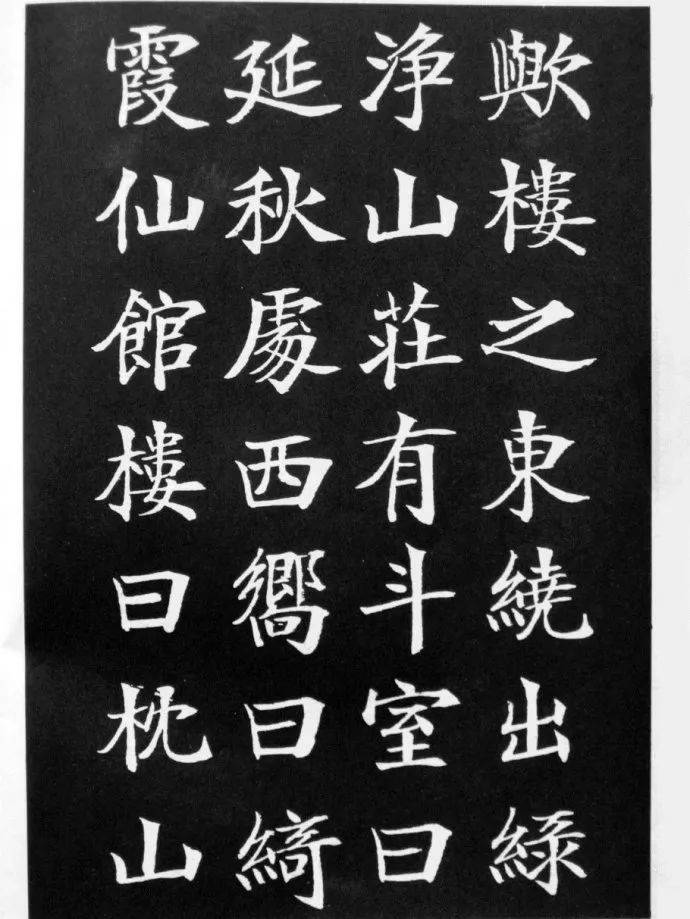 歟樓之東繞出綠
淨山莊有斗室曰
延秋處西嚮曰綺
霞仙館樓曰枕山